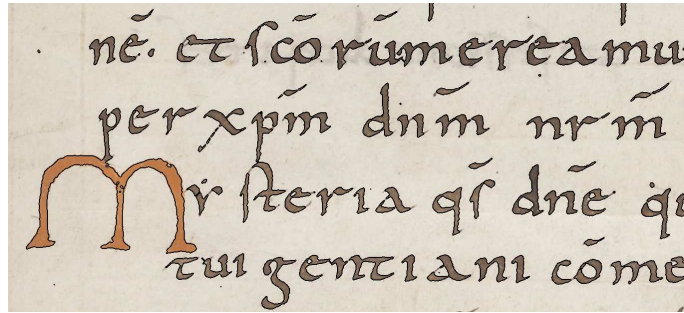 nē. et scōrū mereamu
per xp̄m dn̄m nr̄m
Mẏsteria qs̄ dn̄e
tui gentiani cōme